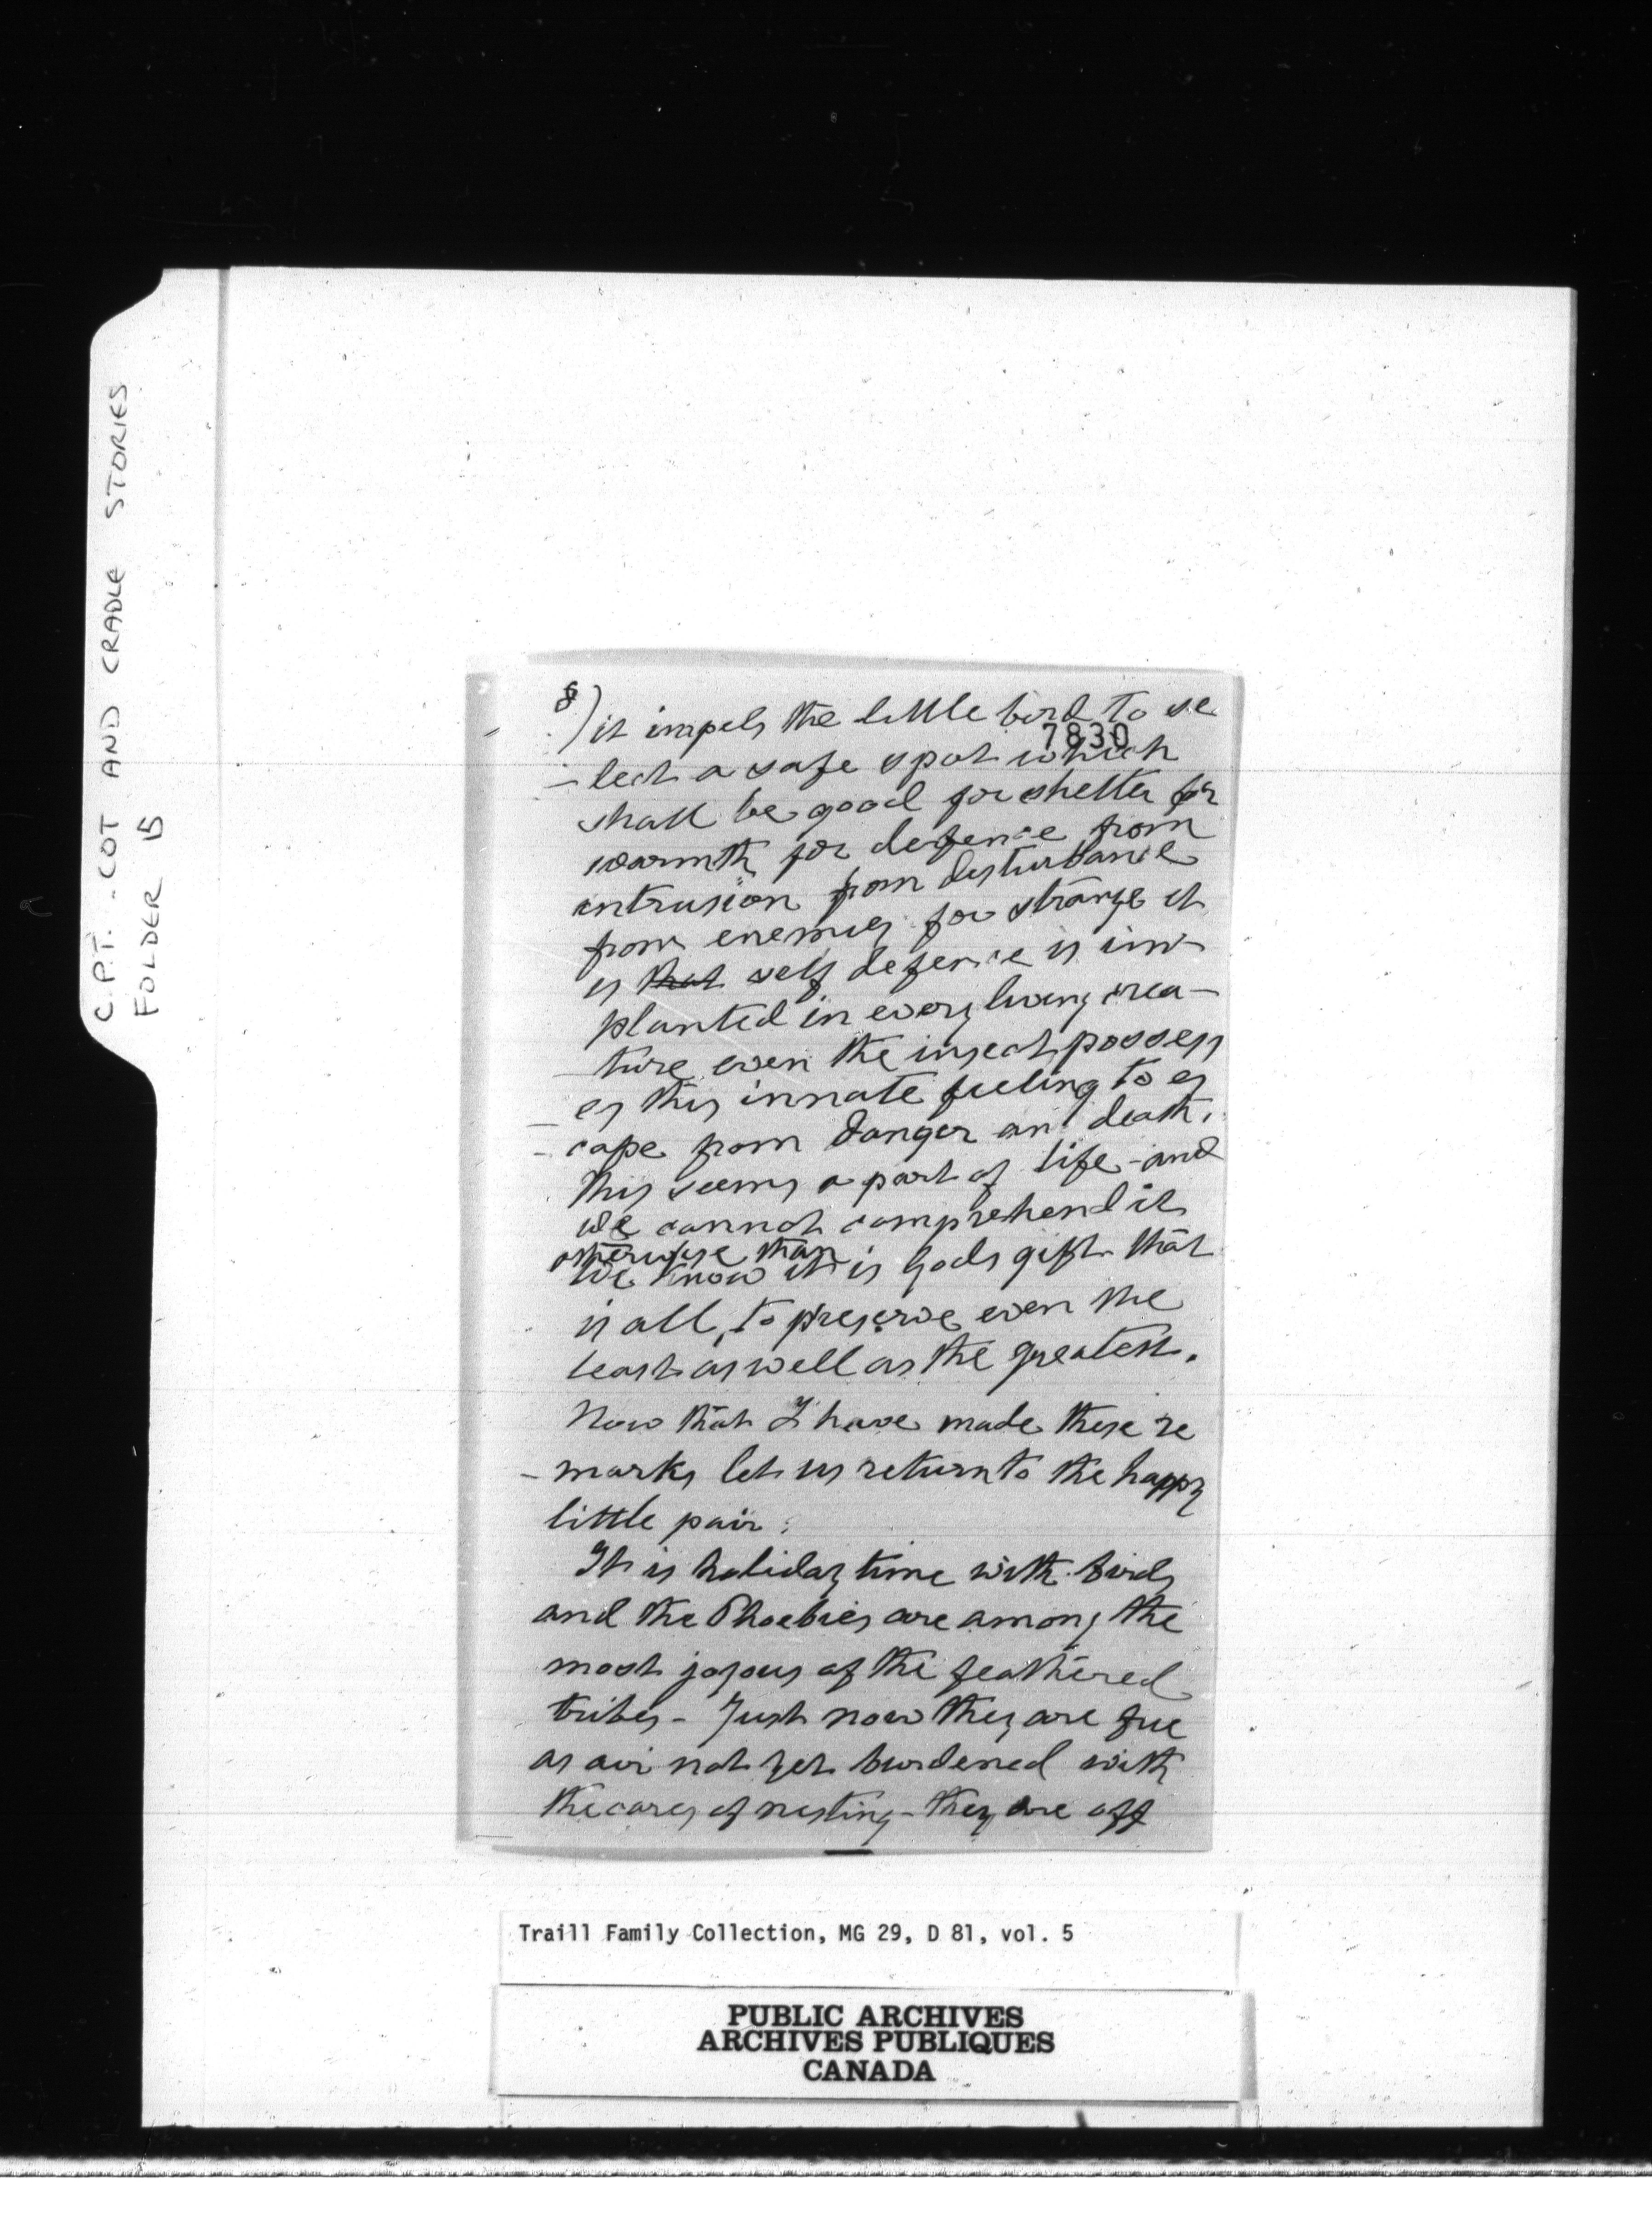 C.P.T. - COT AND CRADLE STORIES
FOLDER 15
8) it impels the little bird to se
7830
- lect a safe spot which
shall be good for shelter for
warmth for defence from
intrusion from disturbance
from enemies for strange it
is that self defence is im-
planted in every living crea-
ture even the insect possess
es this innate feeling to es
- cape from danger and death.
This seems a part of life - and
we cannot comprehend it
otherwise than
We know it is Gods gift that
is all, to preserve even the
least as well as the greatest.
Now that I have made these re
- marks let us return to the happy
little pair.
It is holiday time with birds
and the Phoebies are among the
most joyous of the feathered
tribes - Just now they are free
as air not yet burdened with
the cares of nesting - they are off
Traill Family Collection, MG 29, D 81, vol. 5
PUBLIC ARCHIVES
ARCHIVES PUBLIQUES
CANADA